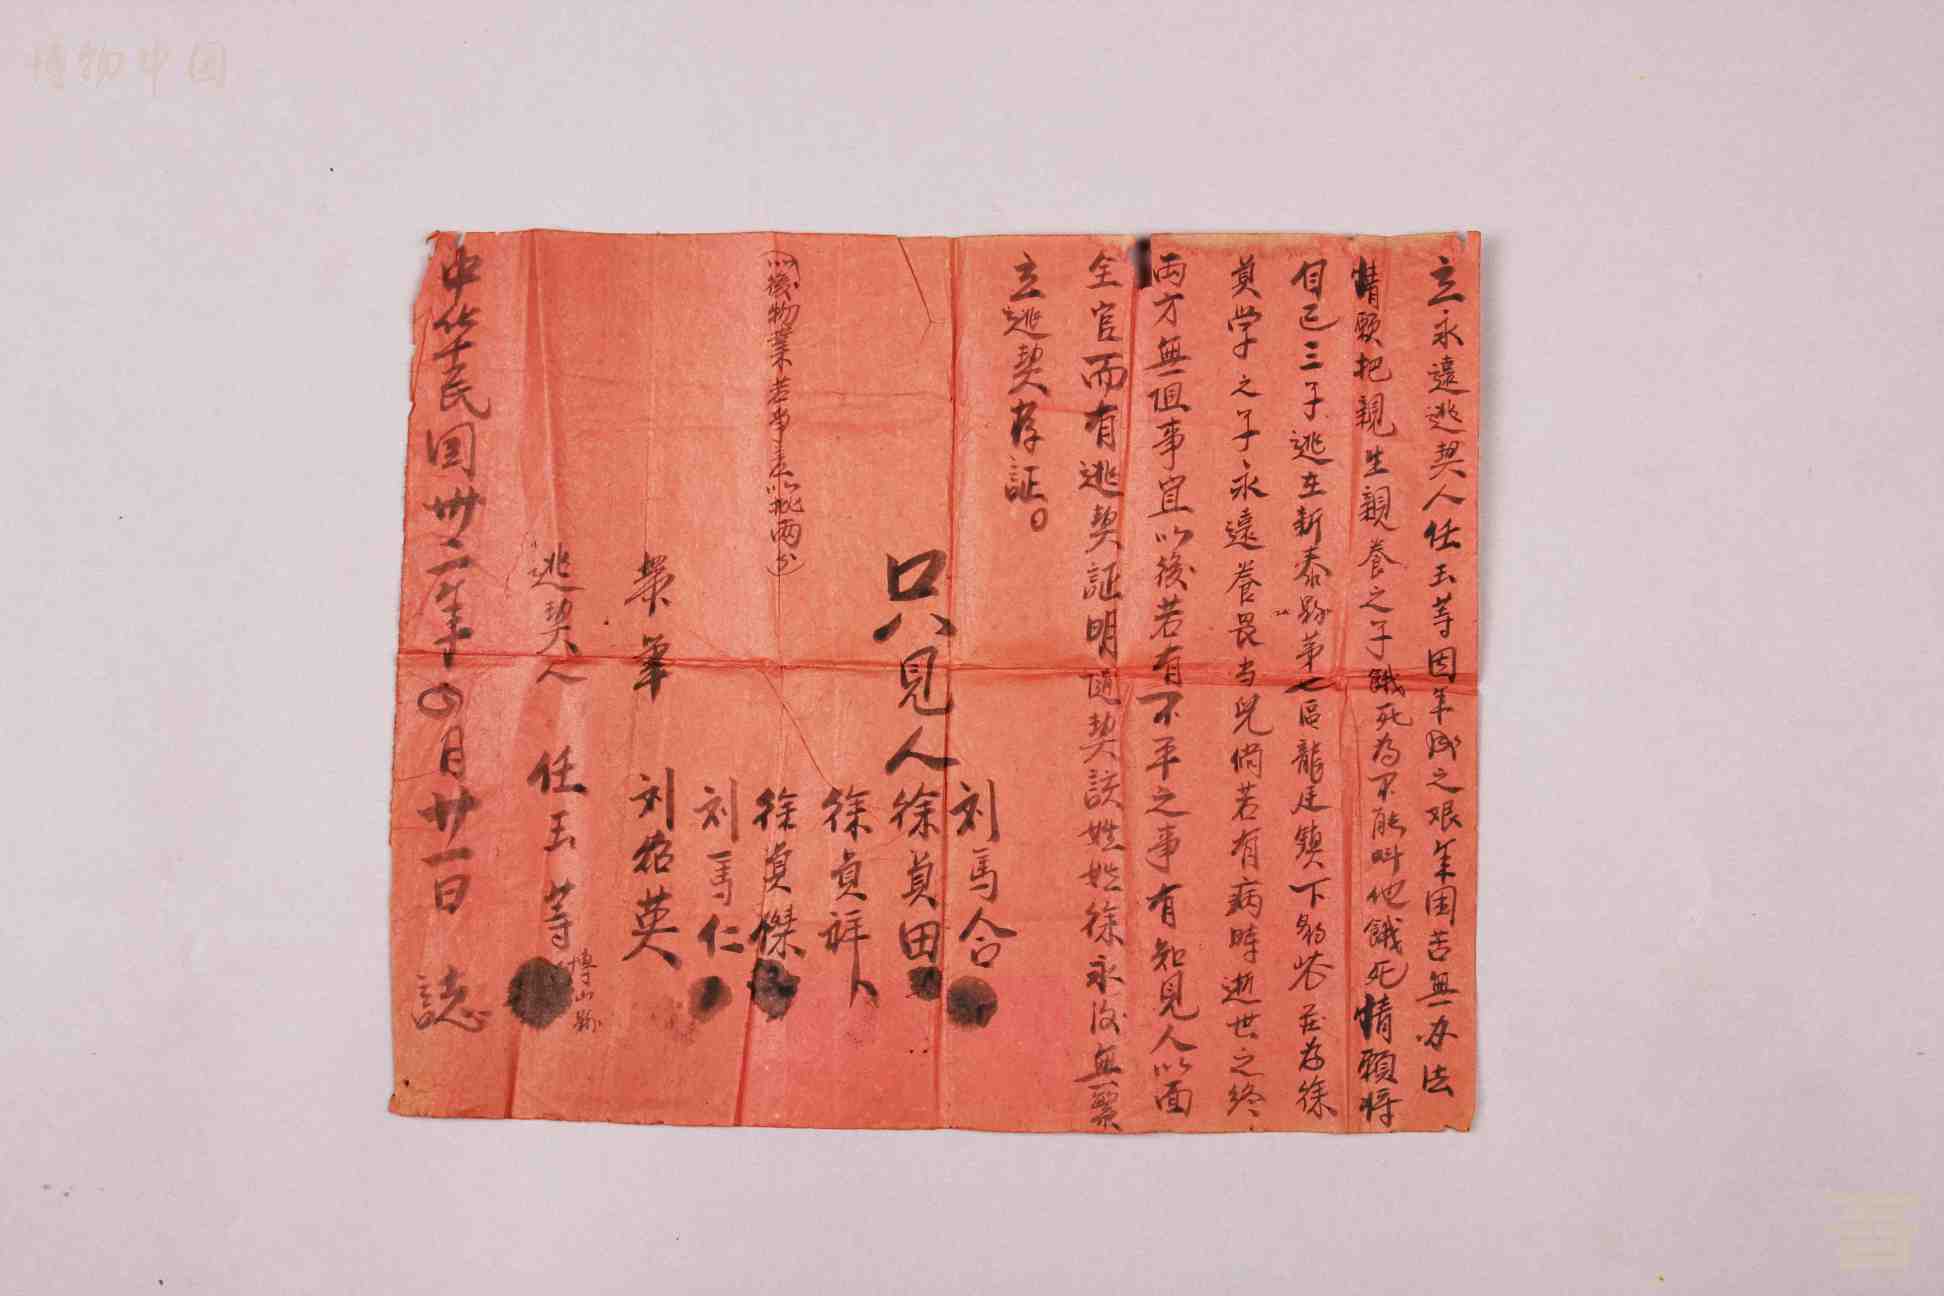 立永遠逃契人任玉等因年成之艰年困苦無办法
情願把親生親養之子餓死為不能叫他餓死情願將
自己三子逃在新泰縣第七區龍廷鎮下莊為徐
員学之子永遠養畏当兒倘若有病時逝世之终
両方無但事宜以後若有不平之事有知見人以面
全官而有逃契証明随契該姓姓徐永後無累
立逃契存証。
刘馬合
只見人徐員田
徐貞祥
(以後物業若弟兄以批両分)
徐貞傑
刘馬仁
業筆 刘紹英
博山縣
逃契人 任玉等
中华民国卅二年四月廿一日 誌
博物中国